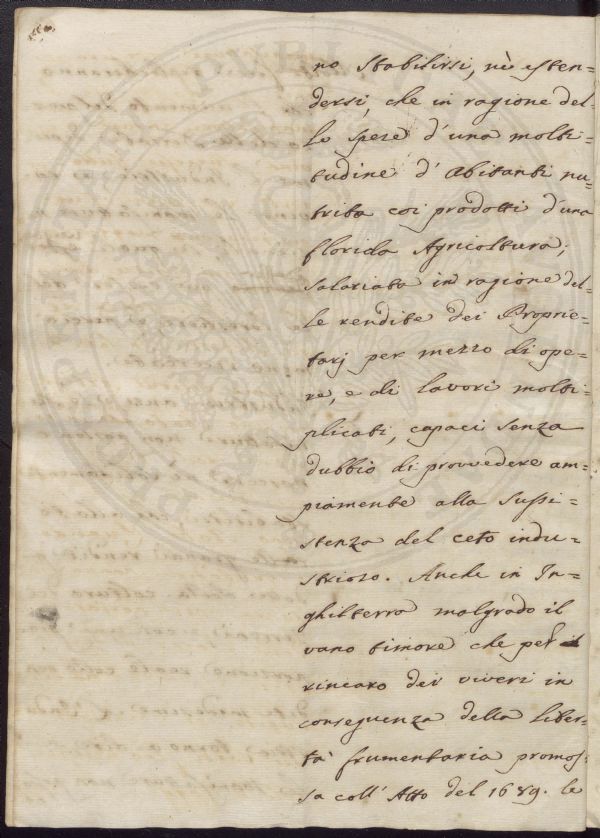 no stabilirsi, nè esten=
dersi, che in ragione del=
le spese d'una molti=
tudine d'Abitanti nu=
trita coi prodotti d'una
florida Agricoltura;
salariata in ragione del=
le rendite dei Proprie=
tarj per mezzo di ope=
re, e di lavori molti=
plicati, capaci senza
dubbio di provvedere am=
piamente alla sussi=
stenza del ceto indu=
strioso. Anche in In=
ghilterra malgrado il
vano timore che per il
rincaro dei viveri in
conseguenza della liber=
tà frumentaria promos=
sa coll'Atto del 1689. le